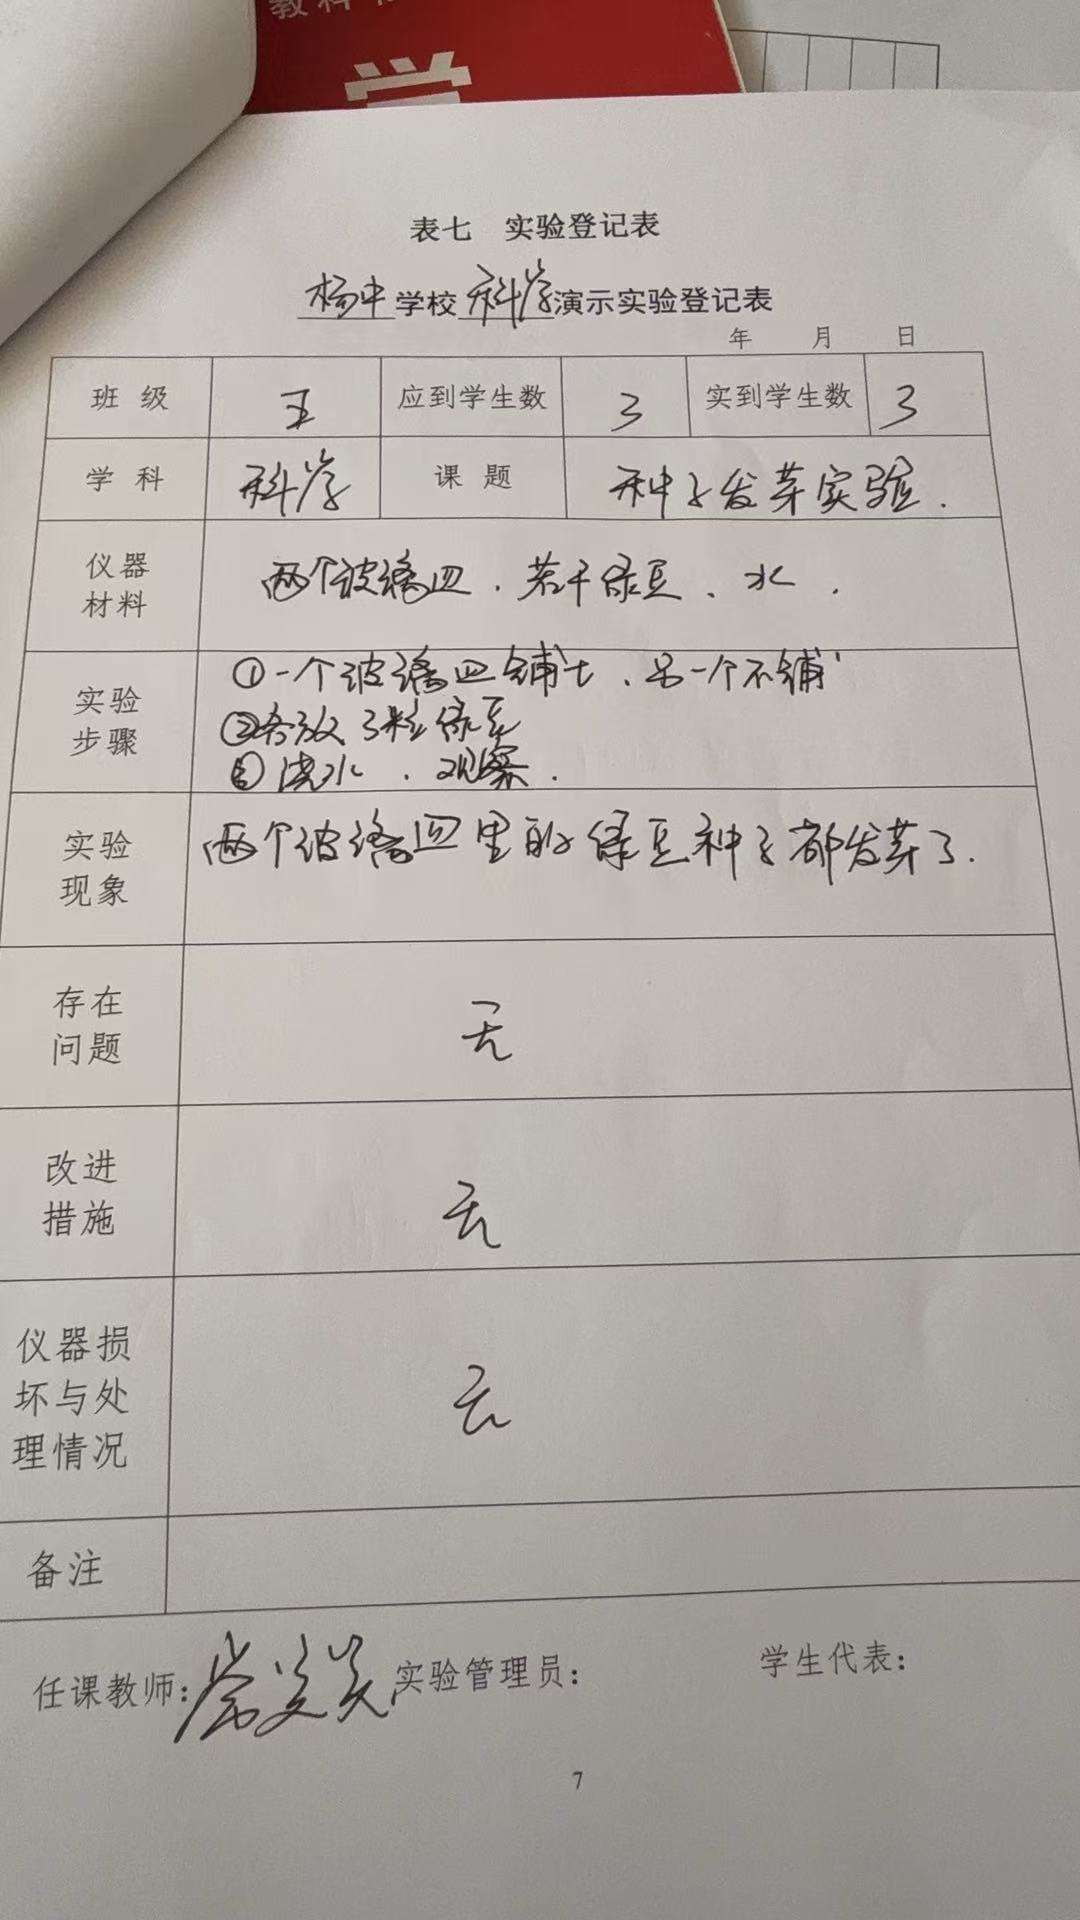 教科
学
表七 实验登记表
杨中学校科学演示实验登记表
年 月 日
班级 五 应到学生数 3 实到学生数 3
学科 科学 课题 种子发芽实验.
仪器材料 两个玻璃皿、若干绿豆、水.
实验步骤 ①一个玻璃皿铺土、另一个不铺
②各放3粒绿豆
③浇水、观察.
实验现象 两个玻璃皿里的绿豆种子都发芽了.
存在问题 无
改进措施 无
仪器损坏与处理情况 无
备注
任课教师: 实验管理员: 学生代表:
7